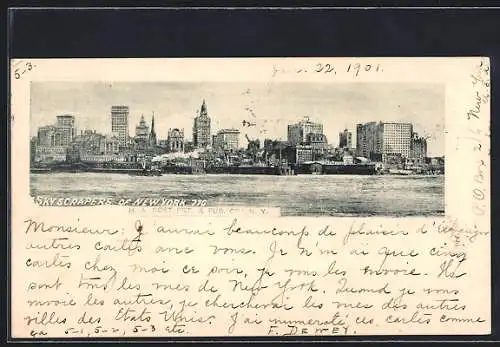 5-3.
Jan. 22, 1901
SKYSCRAPERS OF NEW YORK
N.Y.
Monsieur: J'aurai beaucoup de plaisir d'
autres cartes avec vous. Je n'ai que cinq
cartes chez moi ce soir, je vous les envoie. Ils
sont tous les vues de New York. Quand je vous
envoie les autres, je chercherai les vues des autres
villes des Etats Unis. J'ai numeroté ces cartes comme
ça 5-1, 5-2, 5-3 etc. F. DEWEY.
P.O. Box New York